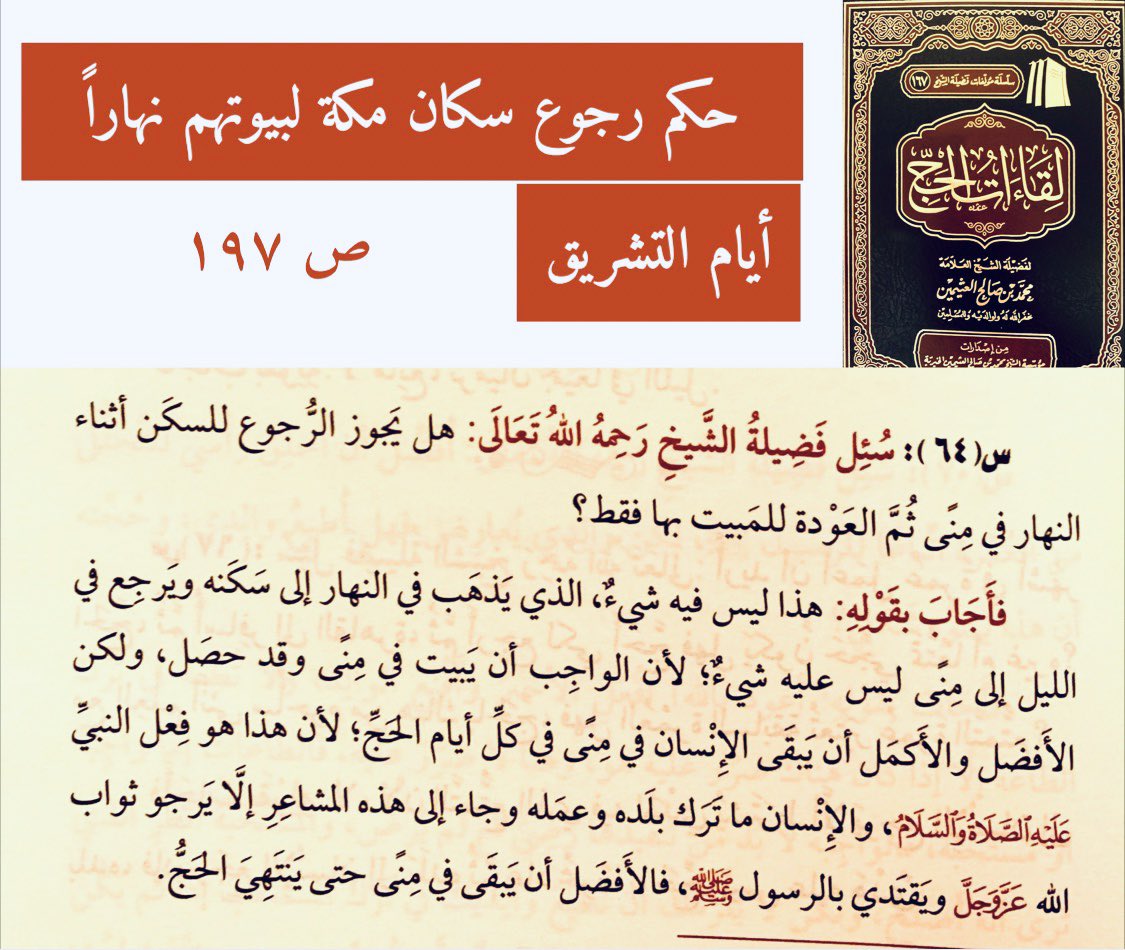 حكم رجوع سكان مكة لبيوتهم نهاراً
أيام التشريق
ص ١٩٧
سلسلة مؤلفات فضيلة الشيخ ١٦٧
لِقَاءَاتُ الحَجِّ
لفضيلة الشيخ العلامة
محمد بن صالح العثيمين
غفر الله له ولوالديه وللمسلمين
من إصدارات
مؤسسة الشيخ محمد بن صالح العثيمين الخيرية
س(٦٤): سُئِل فَضِيلةُ الشَّيخِ رَحِمهُ اللهُ تَعَالَى: هل يَجوز الرُّجوع للسكَن أثناء
النهار في مِنًى ثُمَّ العَوْدة للمَبيت بها فقط؟
فأَجَابَ بقَوْلِهِ: هذا ليس فيه شيءٌ، الذي يَذهَب في النهار إلى سَكَنه ويَرجِع في
الليل إلى مِنًى ليس عليه شيءٌ؛ لأن الواجِب أن يَبيت في مِنًى وقد حصَل، ولكن
الأَفضَل والأَكمَل أن يَبقَى الإِنْسان في مِنًى في كلِّ أيام الحَجِّ؛ لأن هذا هو فِعْل النبيِّ
عَلَيْهِ الصَّلَاةُ وَالسَّلَامُ، والإِنْسان ما تَرَك بلَده وعمَله وجاء إلى هذه المشاعِرِ إلَّا يَرجو ثواب
الله عَزَّوَجَلَّ ويَقتَدي بالرسول ﷺ، فالأَفضَل أن يَبقَى في مِنًى حتى يَنتَهِيَ الحَجُّ.